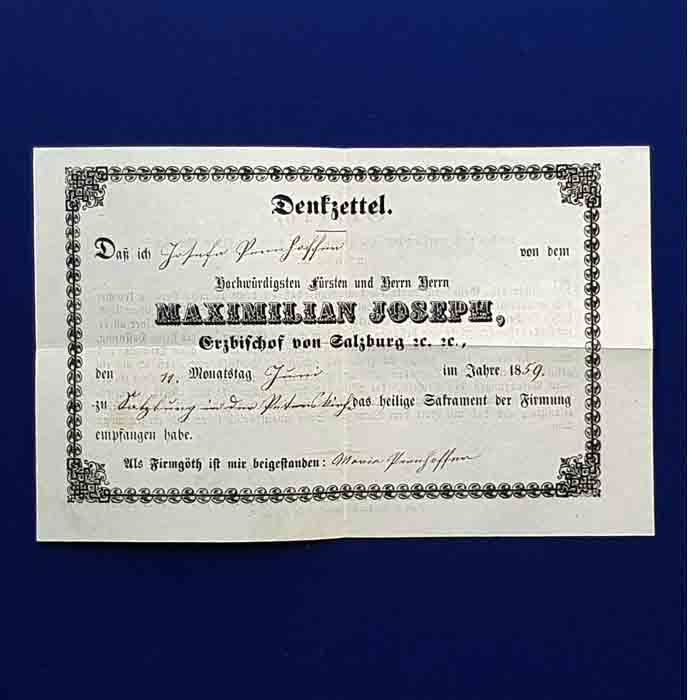 Denkzettel.
Daß ich Josefa Pernhoffer von dem
Hochwürdigsten Fürsten und Herrn Herrn
MAXIMILIAN JOSEPH,
Erzbischof von Salzburg ꝛc. ꝛc.,
den 11. Monatstag Juni im Jahre 1859.
zu Salzburg in der Peterskirche das heilige Sakrament der Firmung
empfangen habe.
Als Firmgöth ist mir beigestanden: Maria Pernhoffer